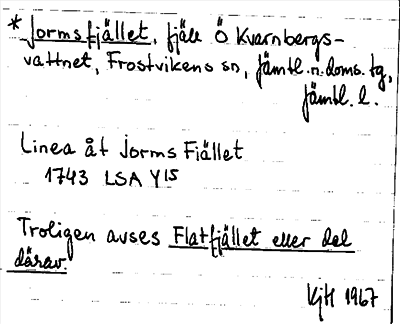 * Jormsfjället, fjäll Ö Kvarnbergs-
vattnet, Frostvikens sn, Jämtl. n. doms. tg,
Jämtl. l.
Linea åt Jorms Fiället
1743 LSA Y15
Troligen avses Flatfjället eller del
därav.
KjH 1967